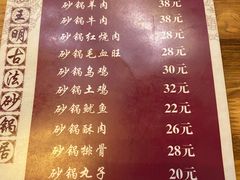 王明古法砂锅居
砂锅羊肉 38元
砂锅牛肉 38元
砂锅红烧肉 28元
砂锅毛血旺 28元
砂锅乌鸡 30元
砂锅土鸡 32元
砂锅鱿鱼 22元
砂锅酥肉 26元
砂锅排骨 28元
砂锅丸子 20元